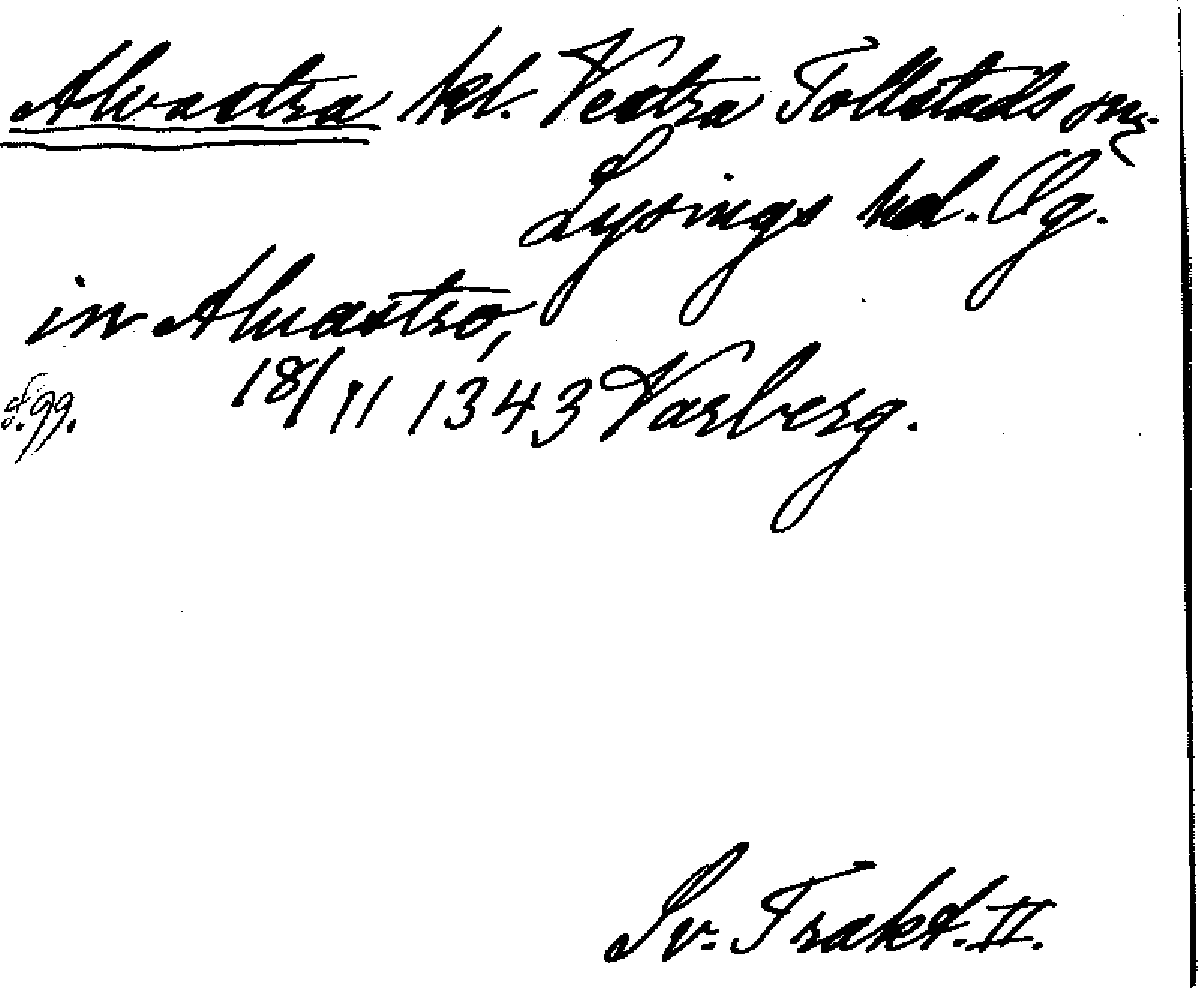 Alvastra kl. Vestra Tollstads sn.
Lysings hd. Ög.
in Alvastro,
18/11 1343 Varberg.
s. 99.
Sv. Trakt. II.